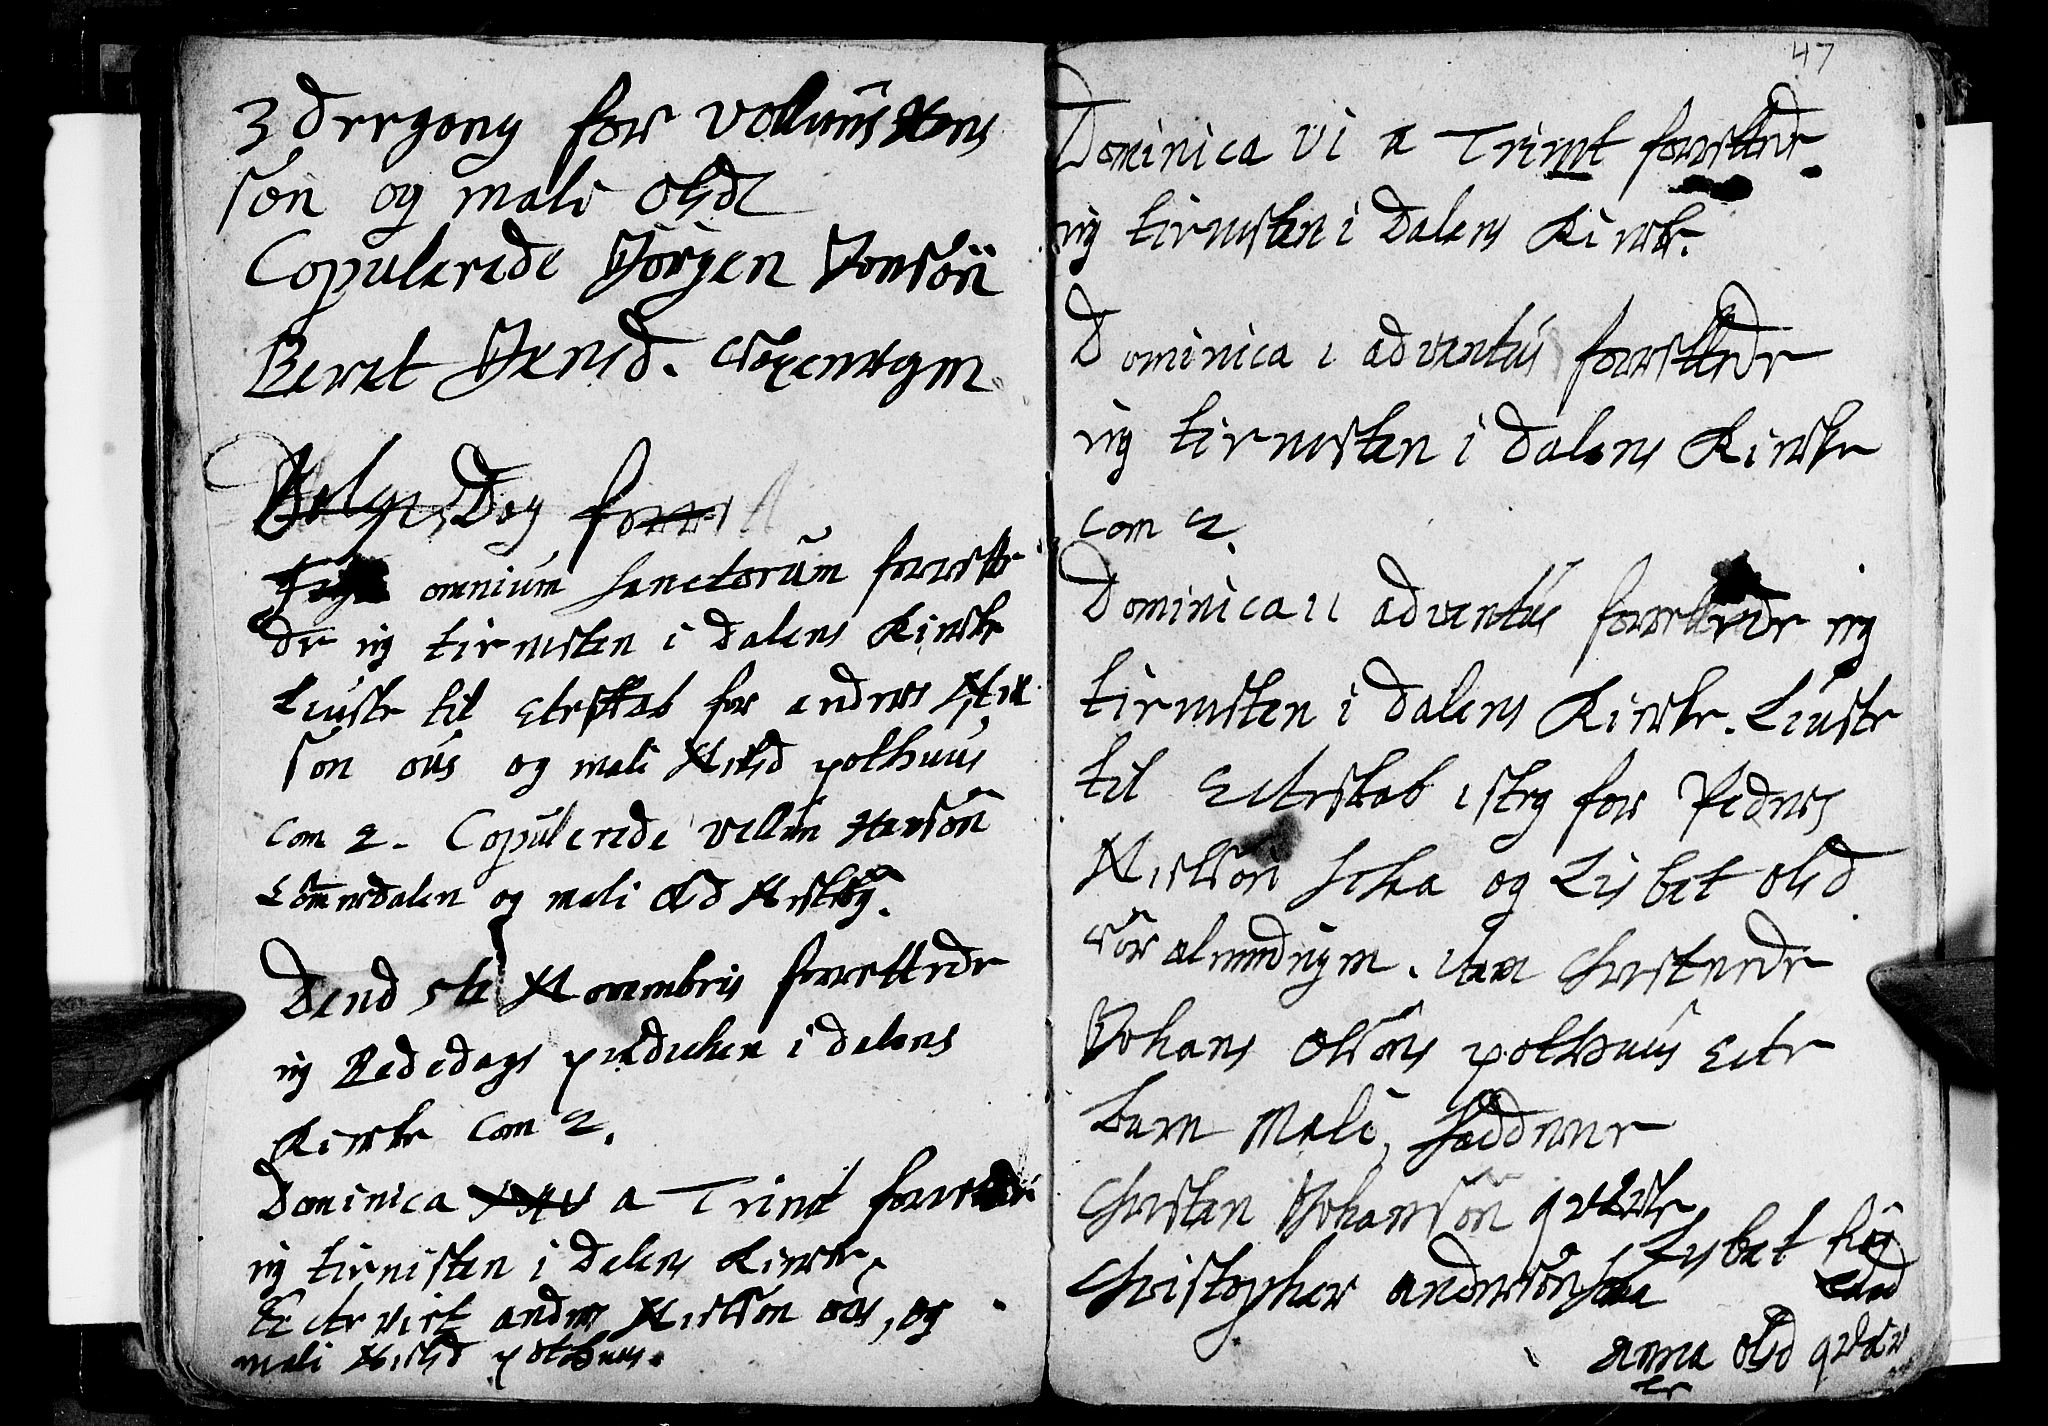 3 dregang for Vellum Hans
sön og mali Olsd
Copulerede Jörgen Jonsön
Beret Jensd.
Helgesdag forr
omnium sanctorum forrette
de ieg tienesten i dalens Kircke
Liuste til Ecteskab for anders Niel
sön ous og mali Nielsd polhuus
Com 2. Copulerede Vellum Hansön
og mali Olsd
Dend 5te Novembris forrettede
ieg Bededags predicken i dalens
Kircke Com 2.
Dominica XXV a Trinit forrettede
ieg tienisten i dalens Kircke
Ecteviet anders Nielsön ous, og
mali Nielsd polhuus.
47
Dominica VI a Trinit forrettede
ieg tienesten i dalens Kircke.
Dominica 1 adventus forrettede
ieg tienesten i dalens Kircke
Com 2.
Dominica 11 adventus forrettede ieg
tienesten i dalens Kircke. Liuste
til Ecteskab 1 steg for Peders
Nielsön og Lisbet Olsd
Item Christnede
Johans Olsöns polhuus Ecte
barn Mali, fadderne
Christen Johansön
Christopher andersön Lisbet
anna Olsd